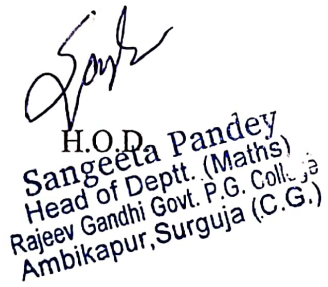 H.O.D.
Sangeeta Pandey
Head of Deptt. (Maths)
Rajeev Gandhi Govt. P.G.
Ambikapur,Surguja (C.G.)